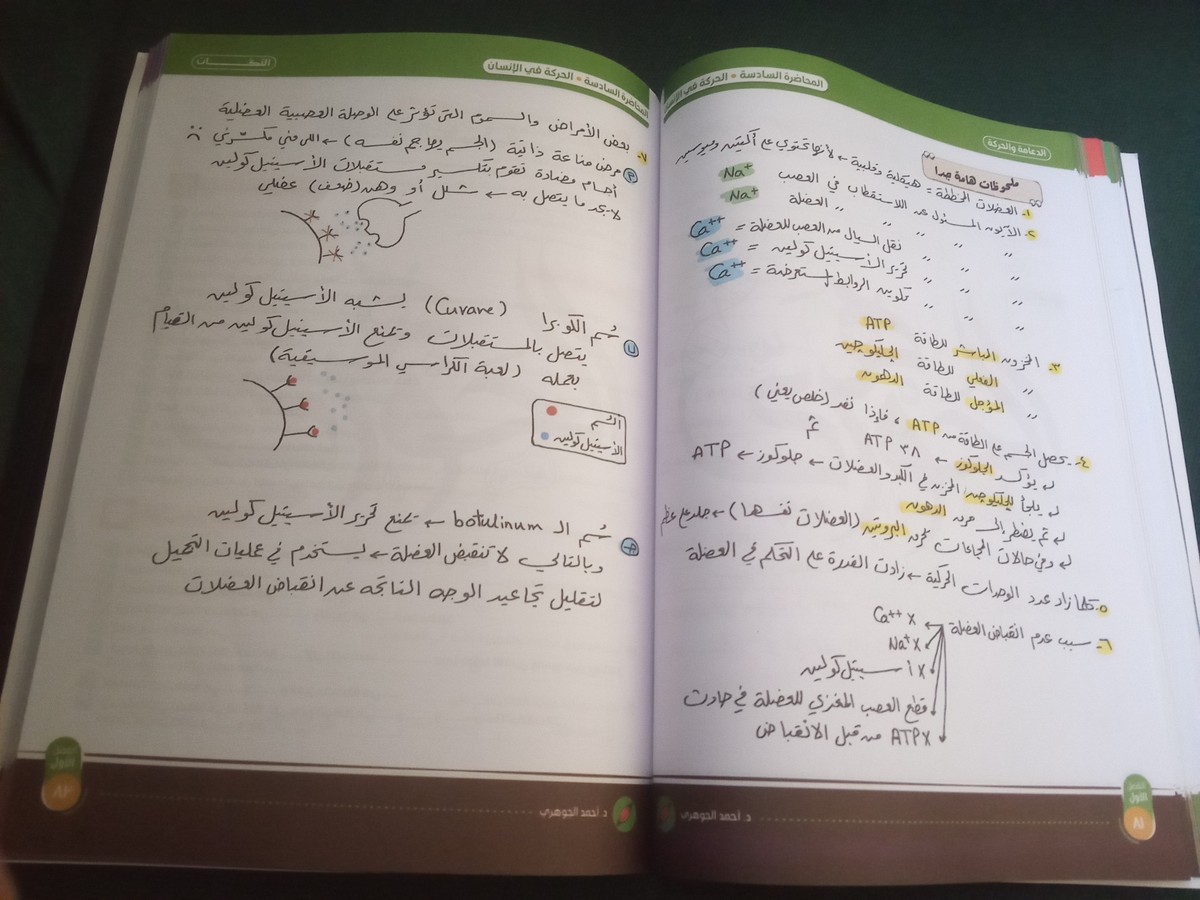 المحاضرة السادسة • الحركة في الإنسان
الدعامة والحركة
ملحوظات هامة جدا
١- العضلات المخططة = هيكلية وقلبية ← لأنها تحتوي على أكتين وميوسين
٢- الأيون المسئول عن اللاستقطاب في العصب Na⁺
〃 〃 〃 〃 〃 العضلة Na⁺
〃 〃 〃 نقل السيال من العصب للعضلة = Ca⁺⁺
〃 〃 〃 تحرير الأسيتيل كولين = Ca⁺⁺
〃 〃 〃 تكوين الروابط المستعرضة = Ca⁺⁺
٣- المخزون المباشر للطاقة ATP
〃 الفعلي للطاقة الجليكوجين
〃 المؤجل للطاقة الدهون
٤- يحصل الجسم على الطاقة من ATP ، فإذا نفد (خلص يعني)
يؤكسد الجلوكوز ← ٣٨ ATP ثم
يلجأ للجليكوجين المخزن في الكبد والعضلات ← جلوكوز ← ATP
ثم يضطر إلى حرق الدهون
وفي حالات المجاعات تحرق البروتين (العضلات نفسها) ← جلد على عظم
٥- كلما زاد عدد الوحدات الحركية ← زادت القدرة على التحكم في العضلة
٦- سبب عدم انقباض العضلة
Ca⁺⁺ X
Na⁺ X
X أسيتيل كولين
قطع العصب المغزي للعضلة في حادث
ATP X من قبل الانقباض
د. أحمد الجوهري
الفصل الأول
٨١
المحاضرة السادسة • الحركة في الإنسان
٧- بعض الأمراض والسموم التي تؤثر على الوصلة العصبية العضلية
أ مرض مناعة ذاتية (الجسم يهاجم نفسه) ← اللي مني مكسرني
أجسام مضادة تقوم بتكسير مستقبلات الأسيتيل كولين
لا يجد ما يتصل به ← شلل أو وهن (ضعف) عضلي
ب سُم الكوبرا (Curare) يشبه الأسيتيل كولين
يتصل بالمستقبلات وتمنع الأسيتيل كولين من القيام
بعمله (لعبة الكراسي الموسيقية)
السُم
الأسيتيل كولين
جـ سُم الـ botulinum ← تمنع تحرير الأسيتيل كولين
وبالتالي لا تنقبض العضلة ← يستخدم في عمليات التجميل
لتقليل تجاعيد الوجه الناتجه عن انقباض العضلات
د. أحمد الجوهري
الفصل الأول
٨٢